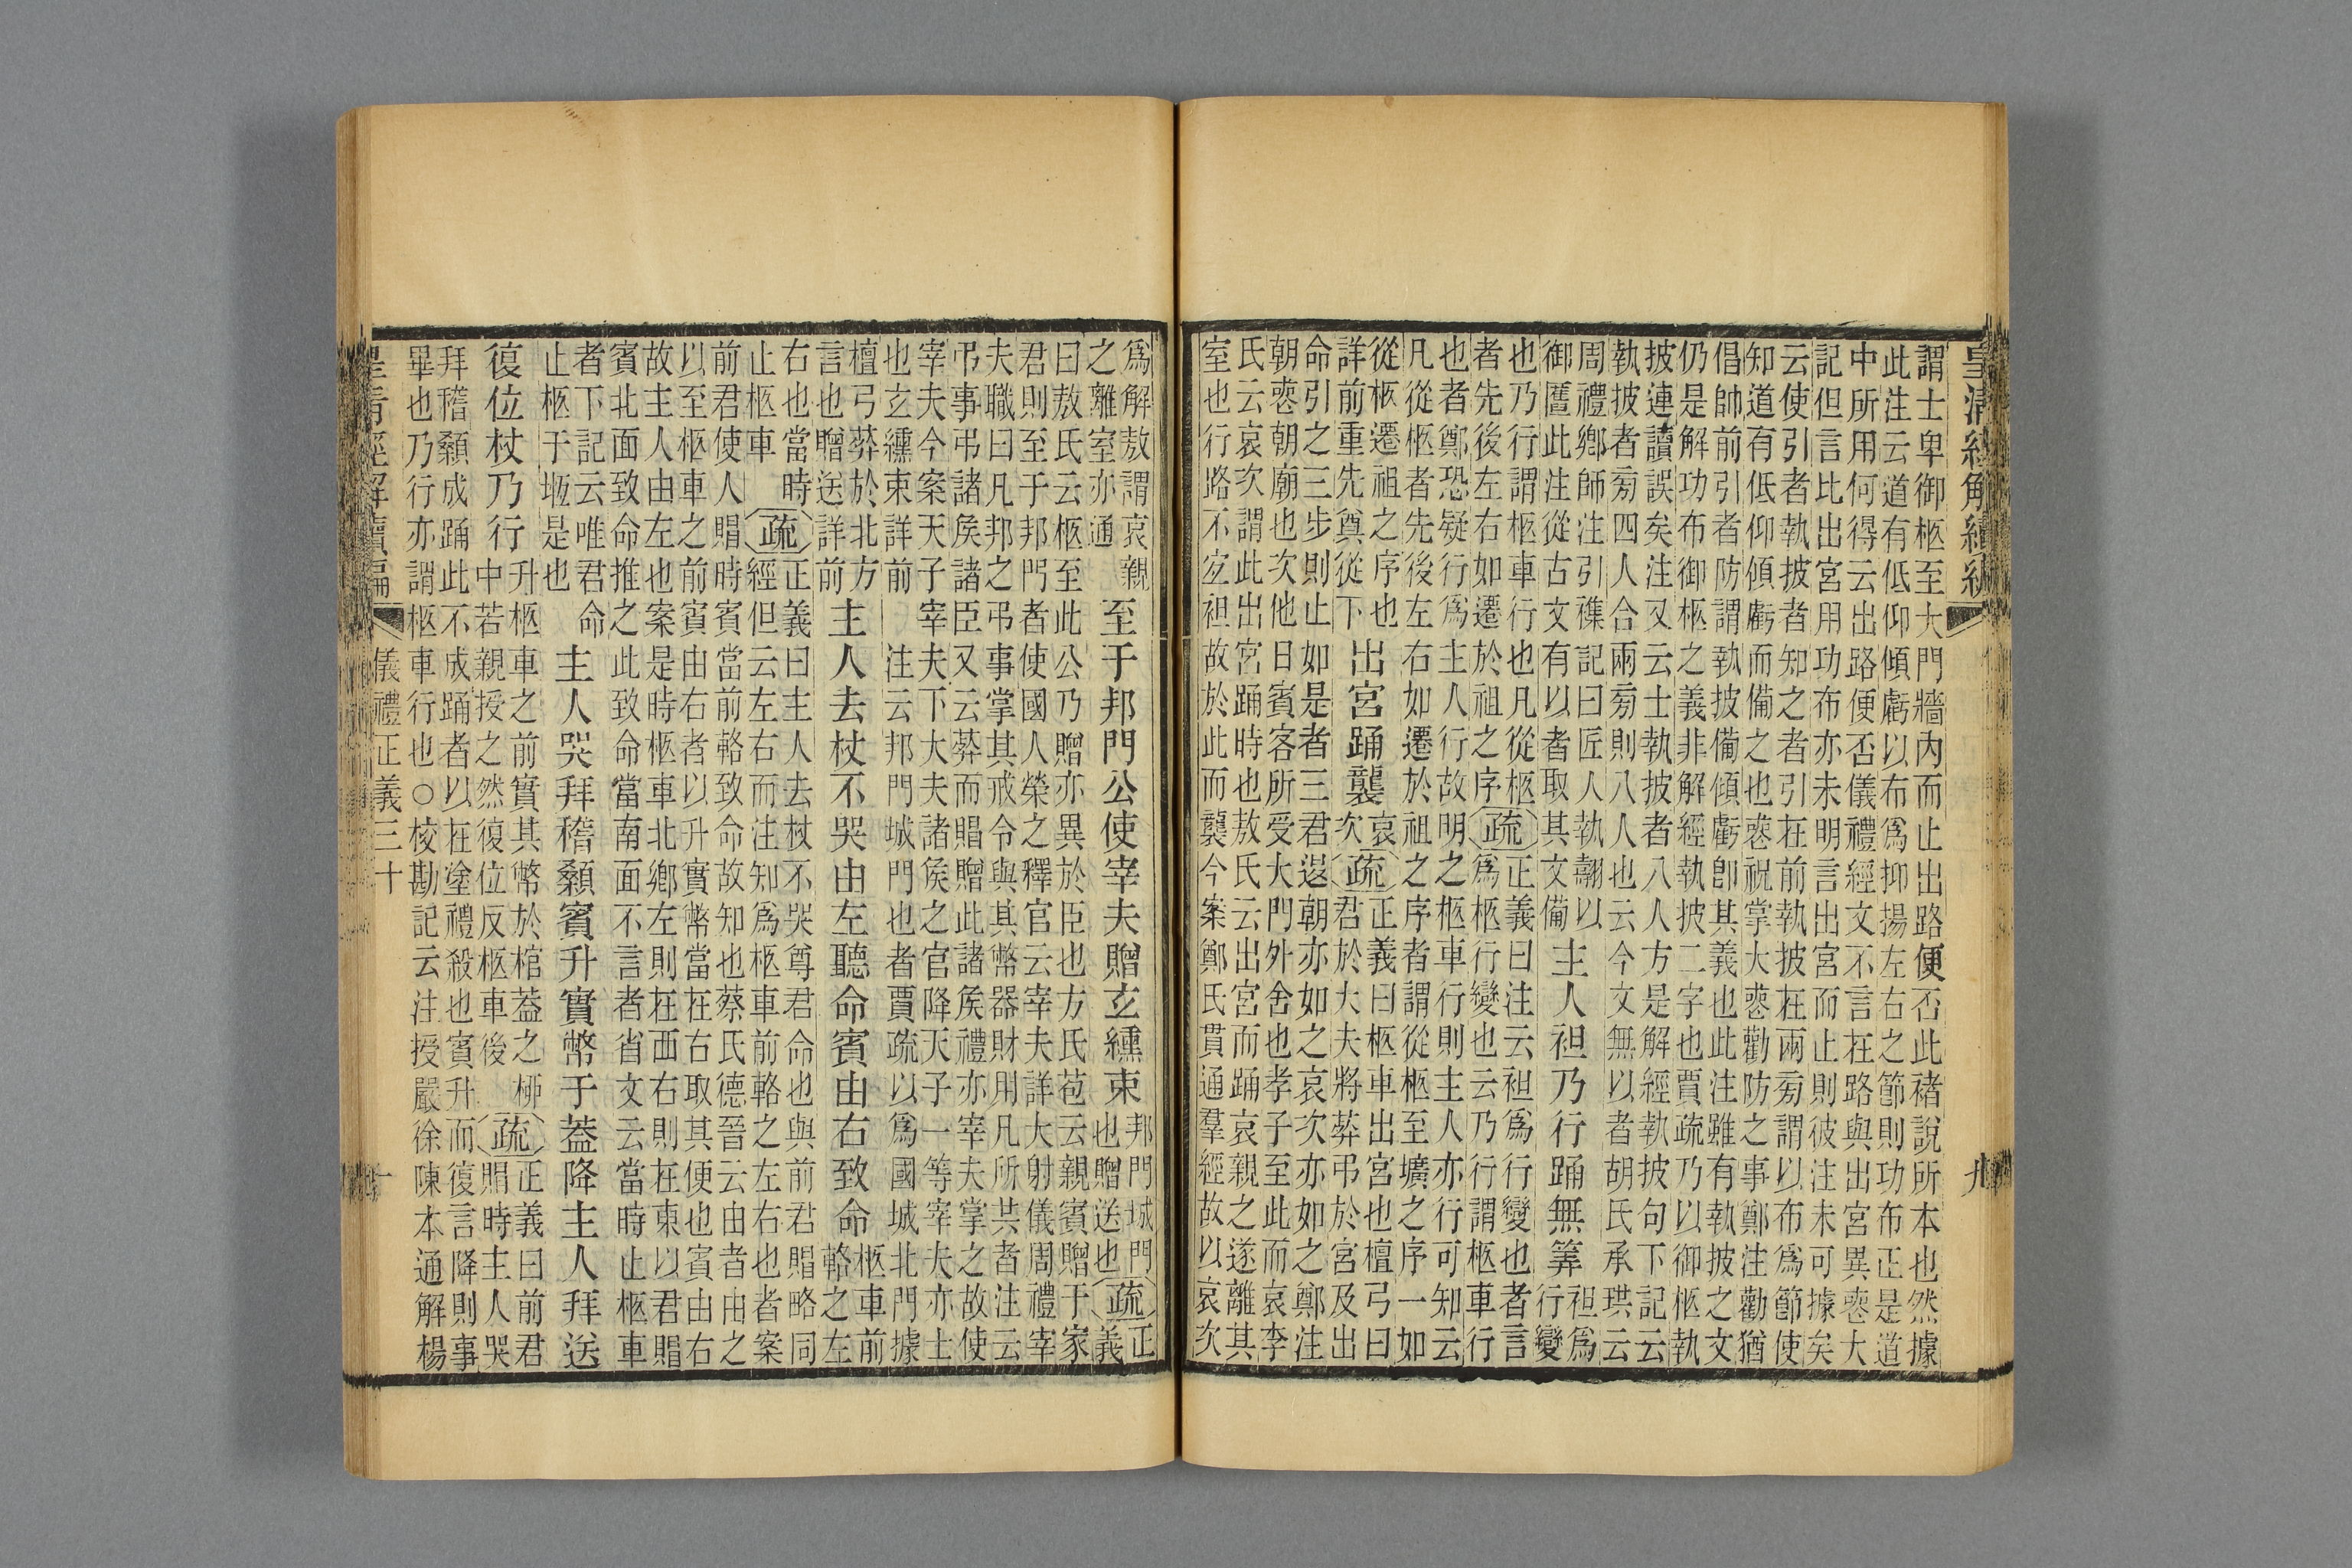 皇清經解續編　九
謂士卑御柩至大門牆內而止出路便否此禇說所本也然據
此注云道有低仰傾虧以布爲抑揚左右之節則功布正是道
中所用何得云出路便否儀禮經文不言在路與出宮異喪大
記但言比出宮用功布亦未明言出宮而止則彼注未可據矣
云使引者執披者知之者引在前執披在兩旁謂以布爲節使
知道有低仰傾虧而備之也喪祝掌大喪勸防之事鄭注勸猶
倡帥前引者防謂執披備傾虧卽其義也此注雖有執披之文
仍是解功布御柩之義非解經執披二字也賈疏乃以御柩執
披連讀誤矣注又云士執披者八人方是解經執披句下記云
執披者旁四人合兩旁則八人也云今文無以者胡氏承珙云
周禮鄉師注引襍記曰匠人執翿以
御匶此注從古文有以者取其文備
主人袒乃行踊無筭
袒爲
行變
也乃行謂柩車行也凡從柩
者先後左右如遷於祖之序
疏
正義曰注云袒爲行變也者言
爲柩行變也云乃行行謂柩車行
也者鄭恐疑行爲主人行故明之柩車行則主人亦行可知云
凡從柩者先後左右如遷於祖之序者謂從柩至壙之序一如
從柩遷祖之序也
詳前重先奠從下
出宮踊襲
哀
次
疏
正義曰柩車出宮也檀弓曰
君於大夫將葬弔於宮及出
命引之三步則止如是者三君退朝亦如之哀次亦如之鄭注
朝喪朝廟也次他日賓客所受大門外舍也孝子至此而哀李
氏云哀次謂此出宮踊時也敖氏云出宮而踊哀親之遂離其
室也行路不宐袒故於此而襲今案鄭氏貫通羣經故以哀次
爲解敖謂哀親
之離室亦通
至于邦門公使宰夫贈玄纁束
邦門城門
也贈送也
疏
正
義
曰敖氏云柩至此公乃贈亦異於臣也方氏苞云親賓贈于家
君則至于邦門者使國人榮之釋官云宰夫詳大射儀周禮宰
夫職曰凡邦之弔事掌其戒令與其幣器財用凡所共者注云
弔事弔諸侯諸臣又云葬而賵贈此諸侯禮亦宰夫掌之故使
宰夫今案天子宰夫下大夫諸侯之官降天子一等宰夫亦士
也玄纁束詳前　注云邦門城門也者賈疏以爲國城北門據
檀弓葬於北方
言也贈送詳前
主人去杖不哭由左聽命賓由右致命
柩車前
輅之左
右也當時
止柩車
疏
正義曰主人去杖不哭尊君命也與前君賵略同
經但云左右而注知爲柩車前輅之左右也者案
前君使人賵時賓當前輅致命故知也蔡氏德晉云由者由之
以至柩車之前賓由右者以升實幣當在右取其便也賓由右
故主人由左也案是時柩車北鄉左則在西右則在東以君賵
賓北面致命推之此致命當南面不言者省文云當時止柩車
者下記云唯君命
止柩于堩是也
主人哭拜稽顙賓升實幣于蓋降主人拜送
復位杖乃行
升柩車之前實其幣於棺蓋之柳
中若親授之然復位反柩車後
疏
正義曰前君
賵時主人哭
拜稽顙成踊此不成踊者以在塗禮殺也賓升而復言降則事
畢也乃行亦謂柩車行也○校勘記云注授嚴徐陳本通解楊
皇清經解續編　儀禮正義三十　十